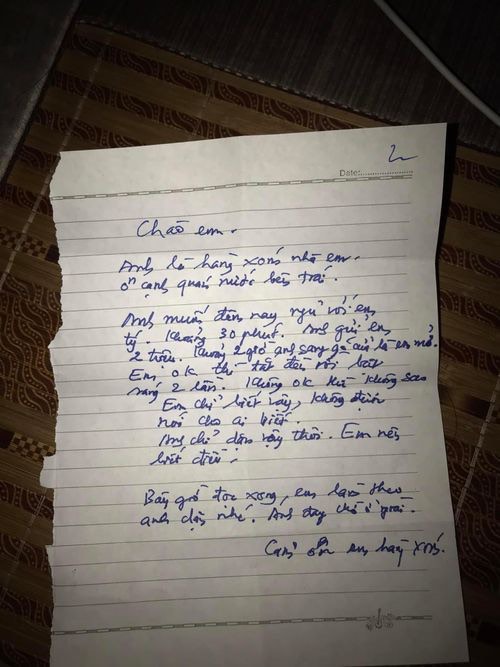 2
Date:
Chào em.
Anh là hàng xóm nhà em.
Ở cạnh quán nước bên trái.
Anh muốn đêm nay ngủ với em
tý. Khoảng 30 phút. Anh gửi em
2 triệu. Khoảng 2 giờ anh sang gõ cửa là em mở.
Em ok thì tắt đèn rồi bật
sáng 2 lần. Không ok thì không sao
Em chỉ biết vậy, không được
nói cho ai biết.
Anh chỉ dặn vậy thôi. Em nên
biết điều.
Bây giờ đọc xong, em làm theo
anh dặn nhé. Anh đang chờ ở ngoài.
Cảm ơn em hàng xóm.